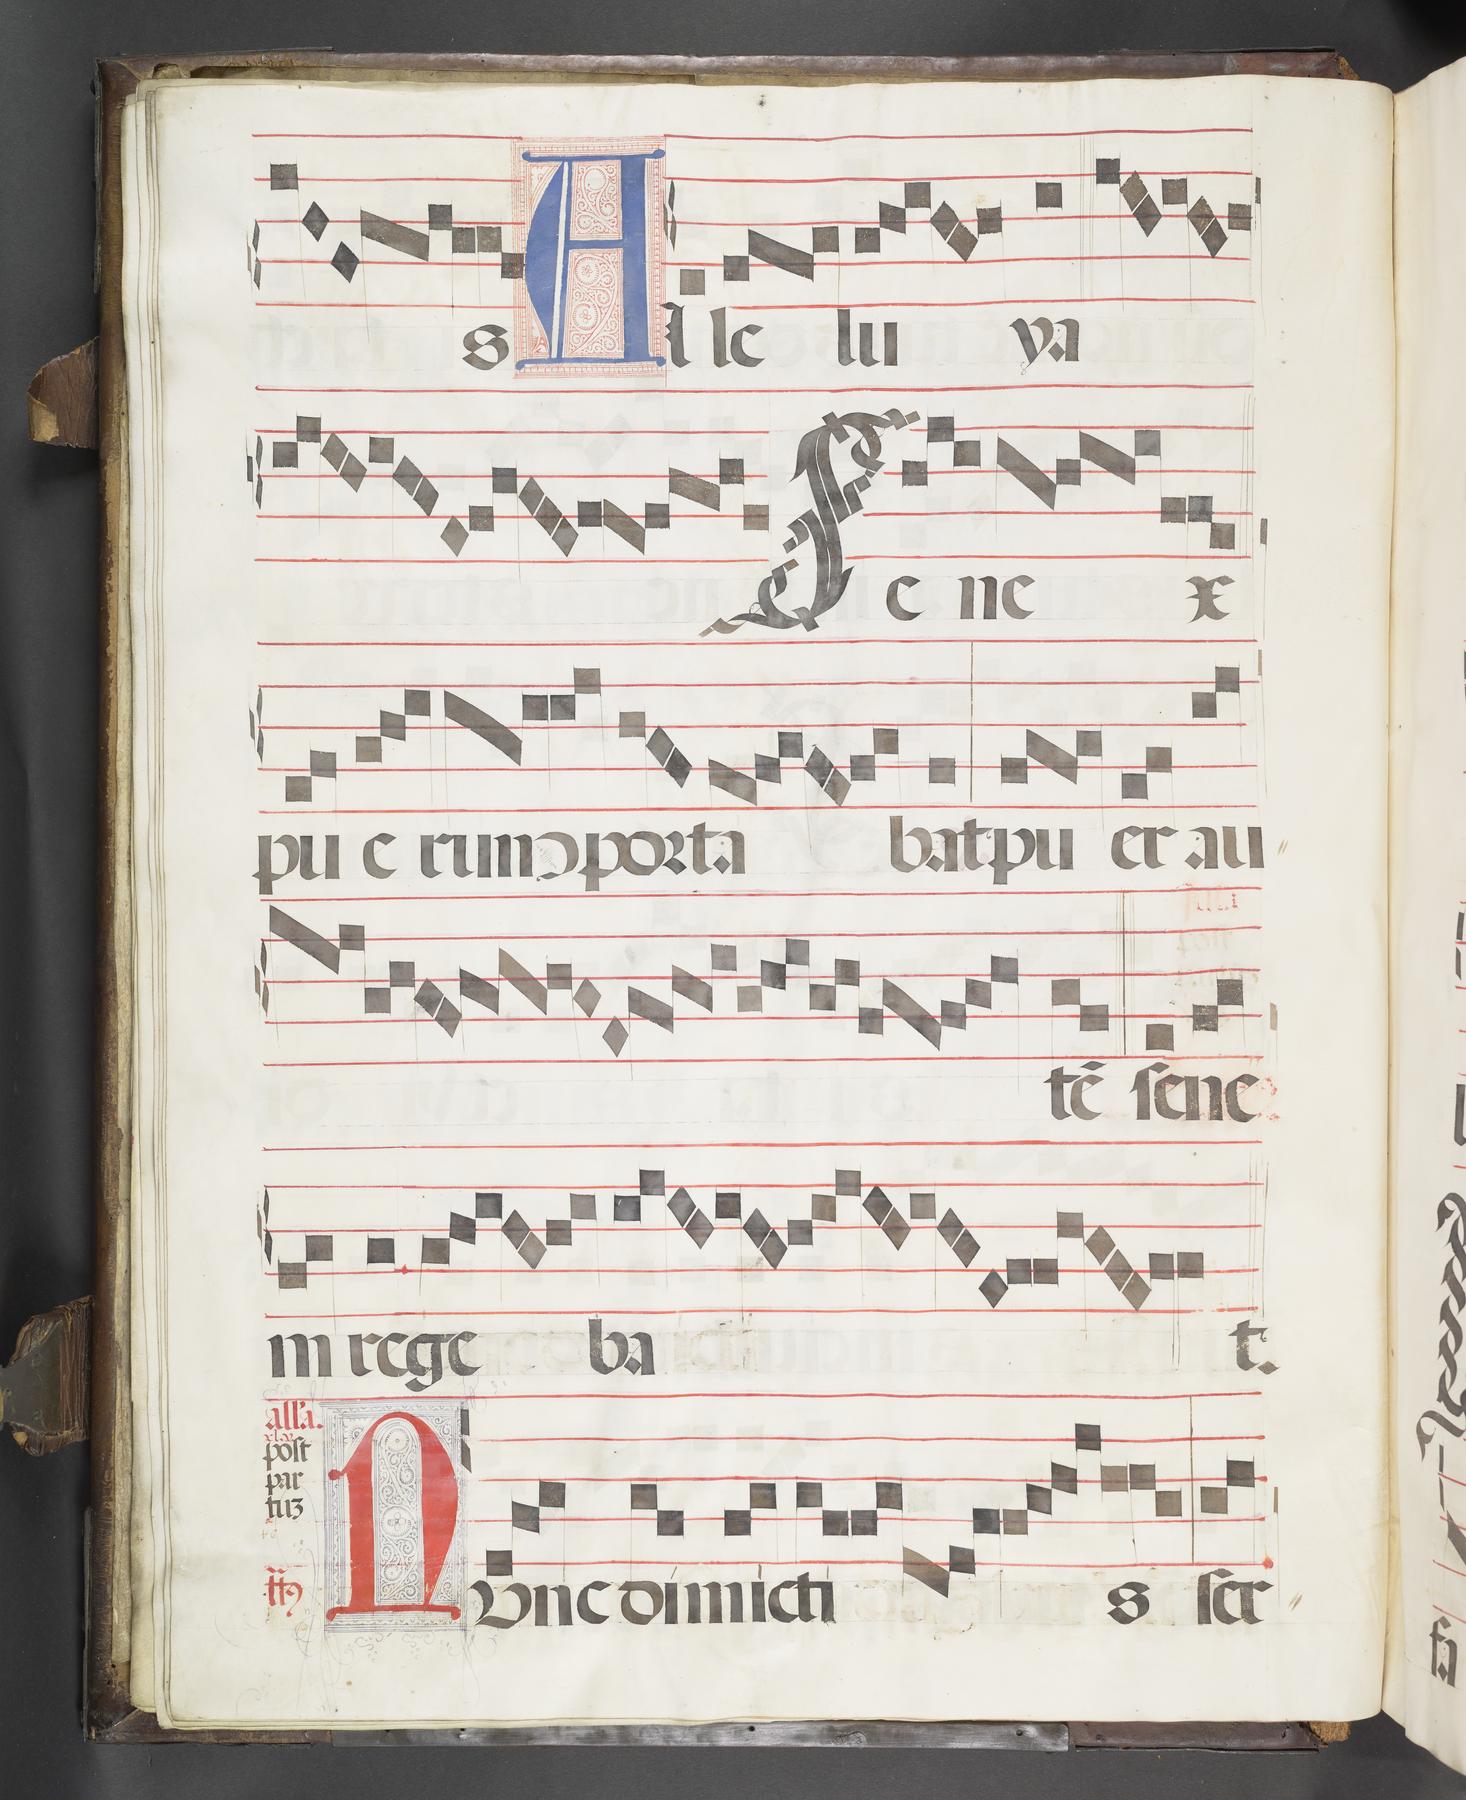 s A Alle lu ya
Se ne x
pu e rum porta bat pu er au
tē sene
m rege ba t.
all'a.
post
par
tuz
tt9
N Vnc dimicti s ser